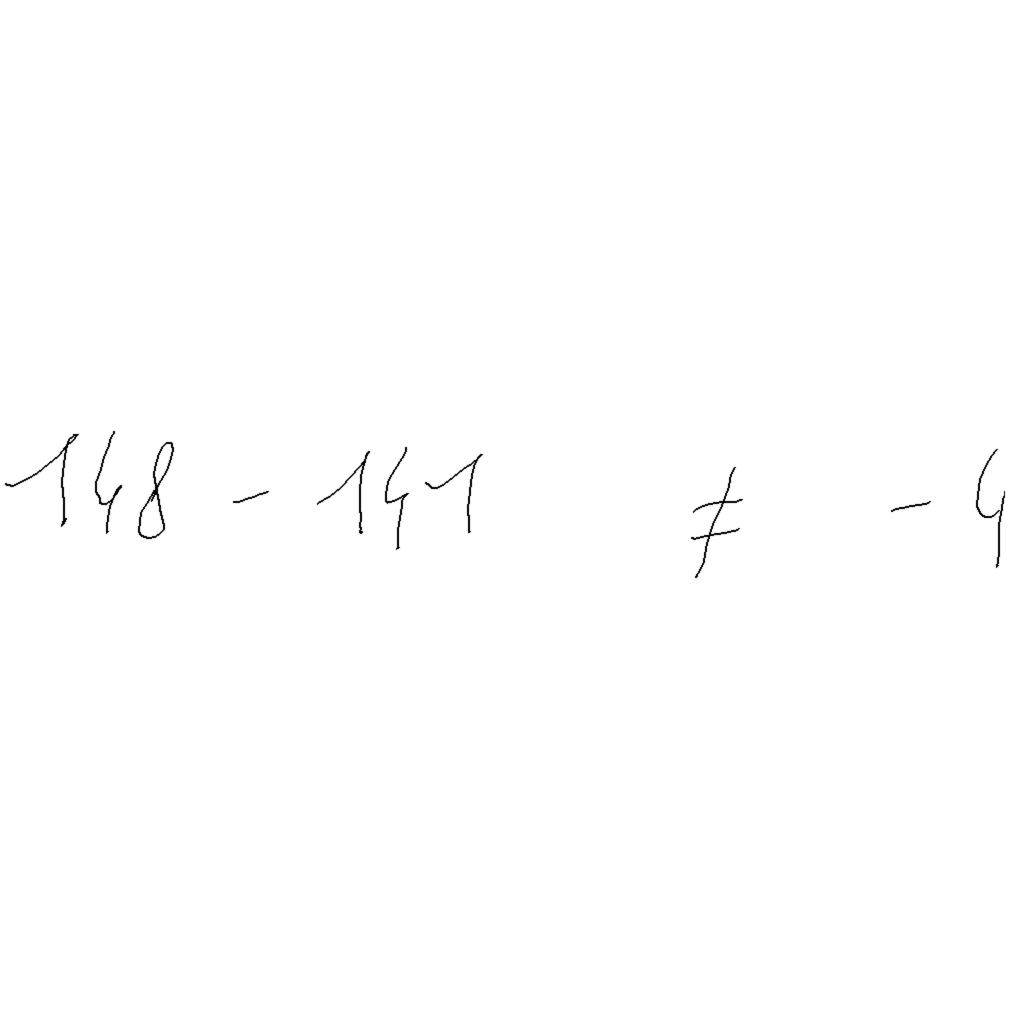 148 - 141 ≠ - 4